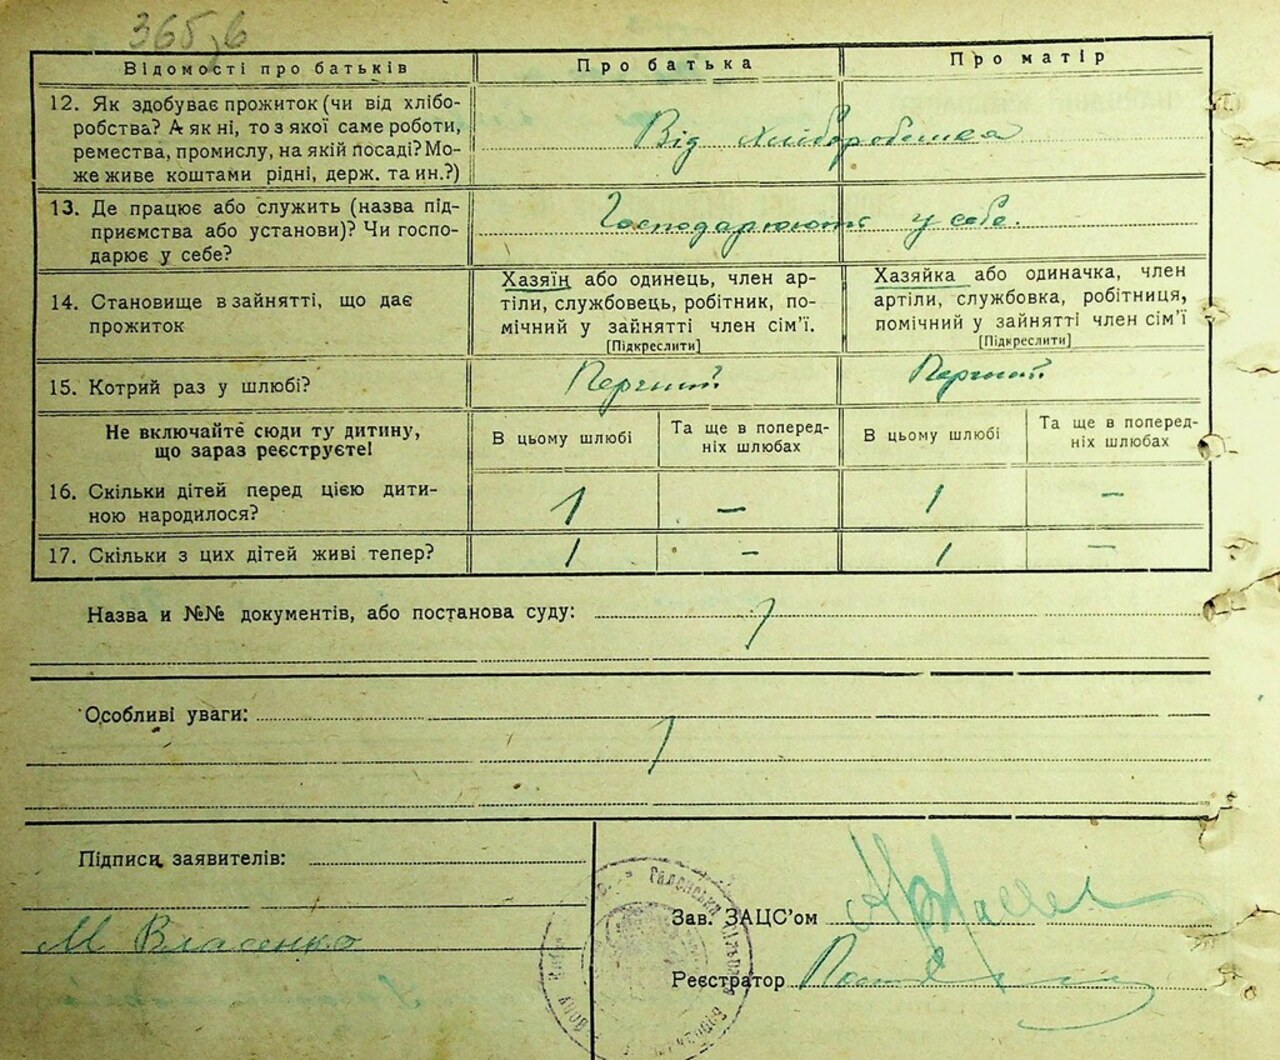 365,6
Відомості про батьків Про батька Про матір
12. Як здобуває прожиток (чи від хлібо-
робства? А як ні, то з якої саме роботи,
ремества, промислу, на якій посаді? Мо-
же живе коштами рідні, держ. та ин.?)
Від Хліборобства
13. Де працює або служить (назва під-
приємства або установи)? Чи госпо-
дарює у себе?
Господарюють у себе.
14. Становище в зайнятті, що дає
прожиток
Хазяїн або одинець, член ар-
тіли, службовець, робітник, по-
мічний у зайнятті член сім'ї.
[Підкреслити]
Хазяйка або одиначка, член
артіли, службовка, робітниця,
помічний у зайнятті член сім'ї
[Підкреслити]
15. Котрий раз у шлюбі? Перший Перший
Не включайте сюди ту дитину,
що зараз реєструєте!
В цьому шлюбі
Та ще в поперед-
ніх шлюбах
В цьому шлюбі
Та ще в поперед-
ніх шлюбах
16. Скільки дітей перед цією дити-
ною народилося?
1 – 1 –
17. Скільки з цих дітей живі тепер? 1 – 1 –
Назва и №№ документів, або постанова суду:
Особливі уваги:
Підписи заявителів:
М Власенко
Зав. ЗАЦС'ом
Реєстратор